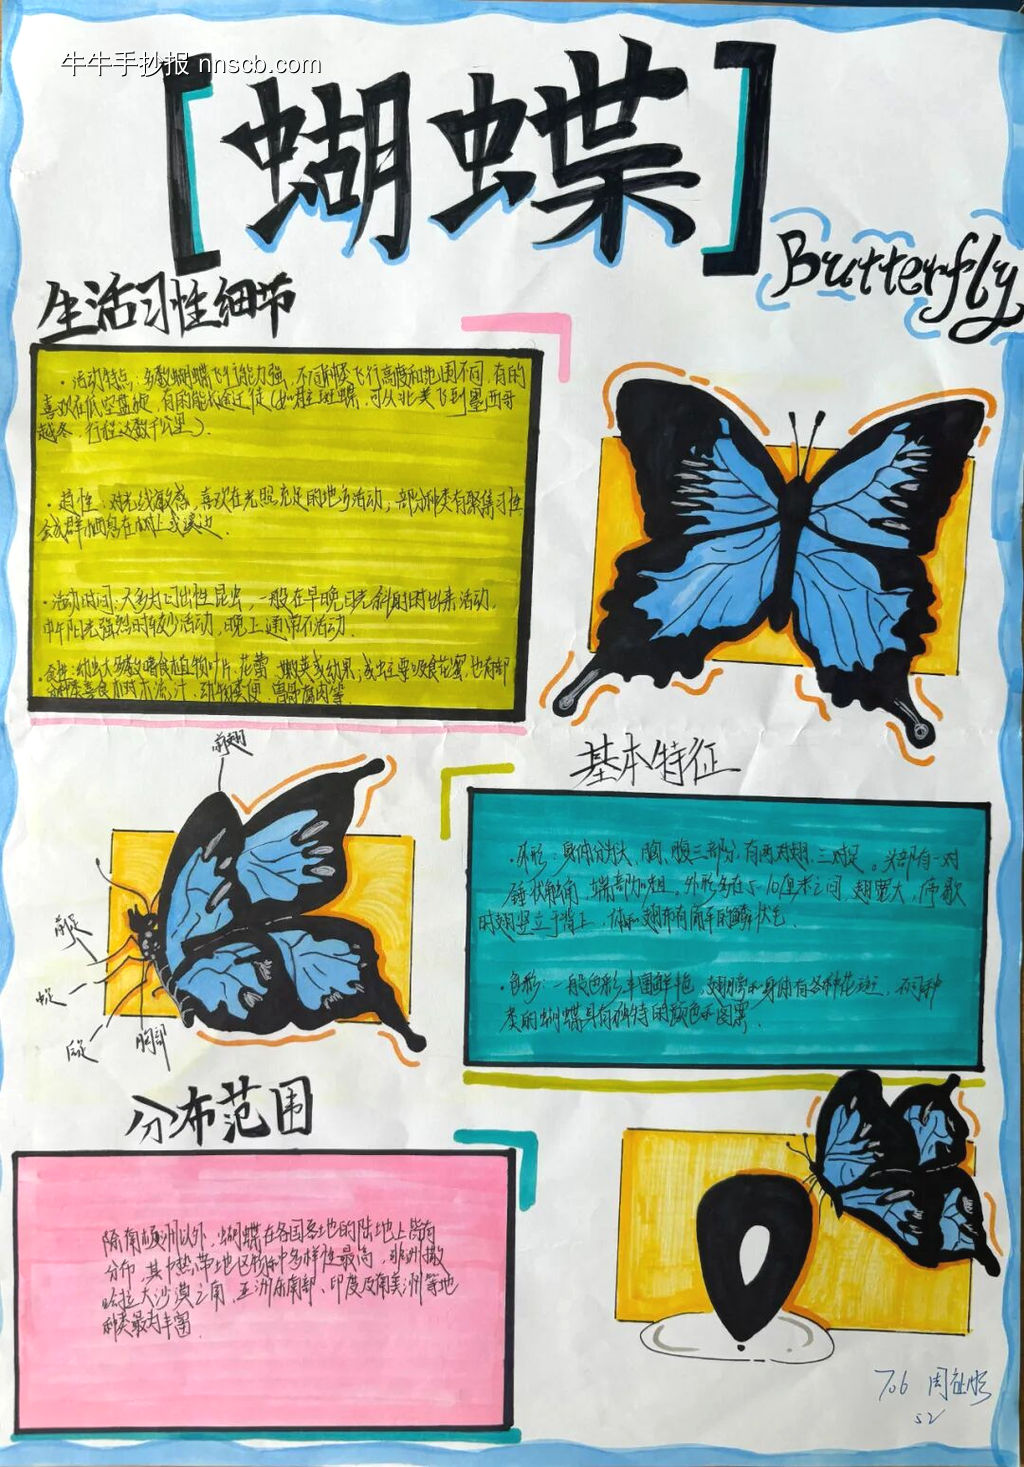 牛牛手抄报 nnscb.com
[蝴蝶]
Butterfly
生活习性细节
·活动特点:多数蝴蝶飞行能力强,不同种类飞行高度和范围不同,有的
喜欢在低空盘旋,有的能长途迁徙(如 斑蝶,可从北美飞到墨西哥
越冬,行程达数千公里).
·趋性:对光线敏感,喜欢在光照充足的地方活动;部分种类有聚集习性,
会成群栖息在树上或溪边.
·活动时间:大多为日出性昆虫,一般在早晚日光斜射时出来活动,
中午阳光强烈时较少活动,晚上通常不活动.
·食性:幼虫大多数嗜食植物叶片,花蕾,嫩荚或幼果;成虫主要吸食花蜜,也有部
分种类喜食 树木流汁,动物粪便,兽骨腐肉等
前翅
前足
后足
胸部
基本特征
·体形:身体分为头、胸、腹三部分,有两对翅,三对足。头部有一对
锤状触角,端部加粗。外形多在5-10厘米之间,翅宽大,停歇
时翅竖立于背上,体和翅布有扁平的鳞状毛
·色彩:一般色彩丰富鲜艳,翅膀和身体有各种花斑,不同种
类的蝴蝶具有独特的颜色和图案.
分布范围
除南极洲以外,蝴蝶在各国各地的陆地上皆有
分布,其中热带地区物种多样性最高,非洲撒
哈拉大沙漠之南,亚洲东南部、印度及南美洲等地
种类最为丰富.
706 周
52